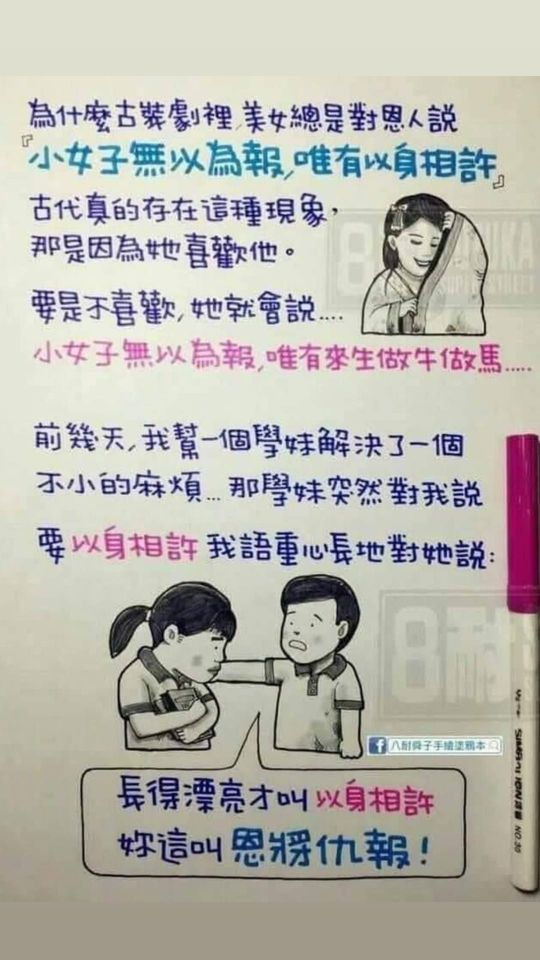 為什麼古裝劇裡,美女總是對恩人說
『小女子無以為報,唯有以身相許』
古代真的存在這種現象,
那是因為她喜歡他。
要是不喜歡,她就會說....
小女子無以為報,唯有來生做牛做馬.....
前幾天,我幫一個學妹解決了一個
不小的麻煩...那學妹突然對我說
要以身相許 我語重心長地對她說:
f 八耐舜子手繪塗鴉本
長得漂亮才叫 以身相許
妳這叫 恩將仇報!
NO.30